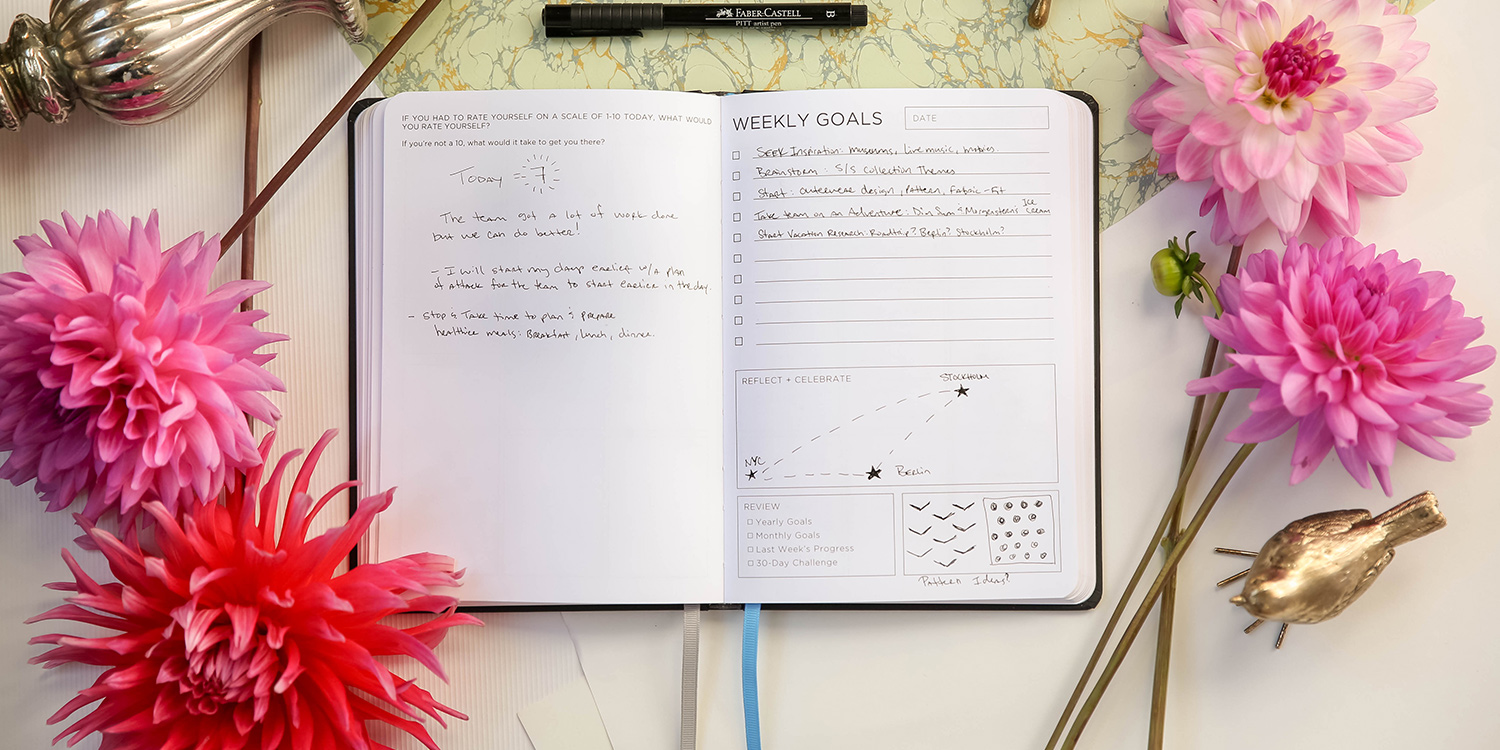 FABER-CASTELL
PITT artist pen B
IF YOU HAD TO RATE YOURSELF ON A SCALE OF 1-10 TODAY, WHAT WOULD
YOU RATE YOURSELF?
If you're not a 10, what would it take to get you there?
TODAY = 7
The team got a lot of work done
but we can do better!
- I will start my days earlier w/a plan
of attack for the team to start earlier in the day.
- Stop & Take time to plan & PREPARE
healthier meals: Breakfast, lunch, dinner.
WEEKLY GOALS
DATE
SEEK Inspiration: museums, live music, movies.
Brainstorm: S/S Collection Themes
Start: outerwear design, pattern, Fabric - Fit
Take team on an Adventure: Dim Sum & Morgenstern's Ice Cream
Start Vacation Research: Roadtrip? Berlin? Stockholm?
REFLECT + CELEBRATE
STOCKHOLM
NYC
Berlin
REVIEW
Yearly Goals
Monthly Goals
Last Week's Progress
30-Day Challenge
Pattern Ideas?